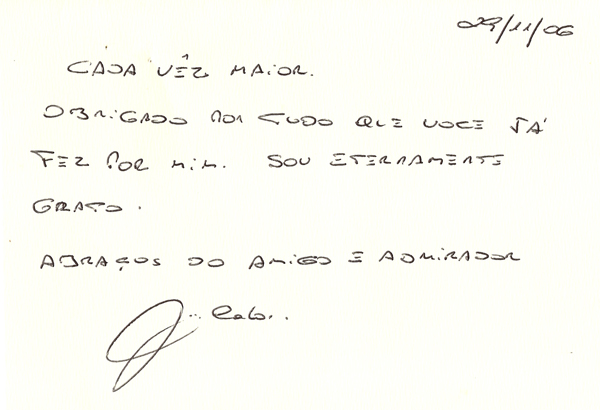 29/11/06
CADA VÊZ MAIOR.
OBRIGADO POR TUDO QUE VOCE JÁ
FEZ POR MIM. SOU ETERNAMENTE
GRATO.
ABRAÇOS DO AMIGO E ADMIRADOR